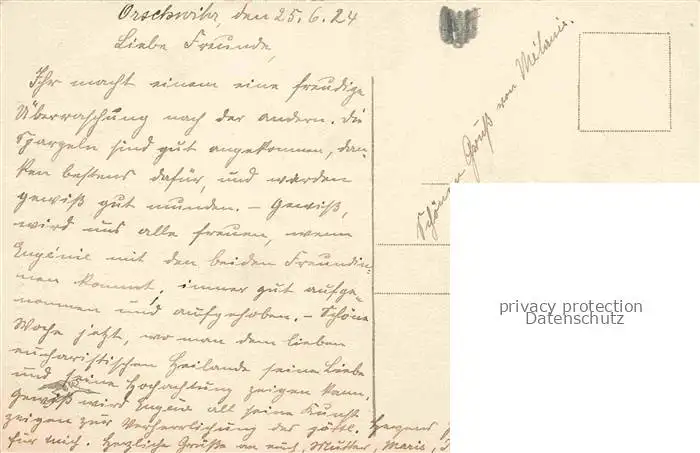 Orschwihr, den 25.6.24
Liebe Freunde,
Ihr macht einem eine freudige
Überraschung nach der andern. Die
Spargeln sind gut angekommen, dan-
ken bestens dafür, und werden
gewiß gut munden. – Gewiß,
wird uns alle freuen, wenn
Eugénie mit den beiden Freundin-
nen kommt, immer gut aufge-
nommen und aufgehoben. – Schöne
Woche jetzt, wo man dem lieben
eucharistischen Heilande seine Liebe
und seine Hochachtung zeigen kann.
Gewiß wird Eugénie all seine Kunst
zeigen zur Verherrlichung des göttl. Herzens
für mich. Herzliche Grüße an euch, Mutter, Marie,
Schönen Gruß von Mélanie.
privacy protection
Datenschutz